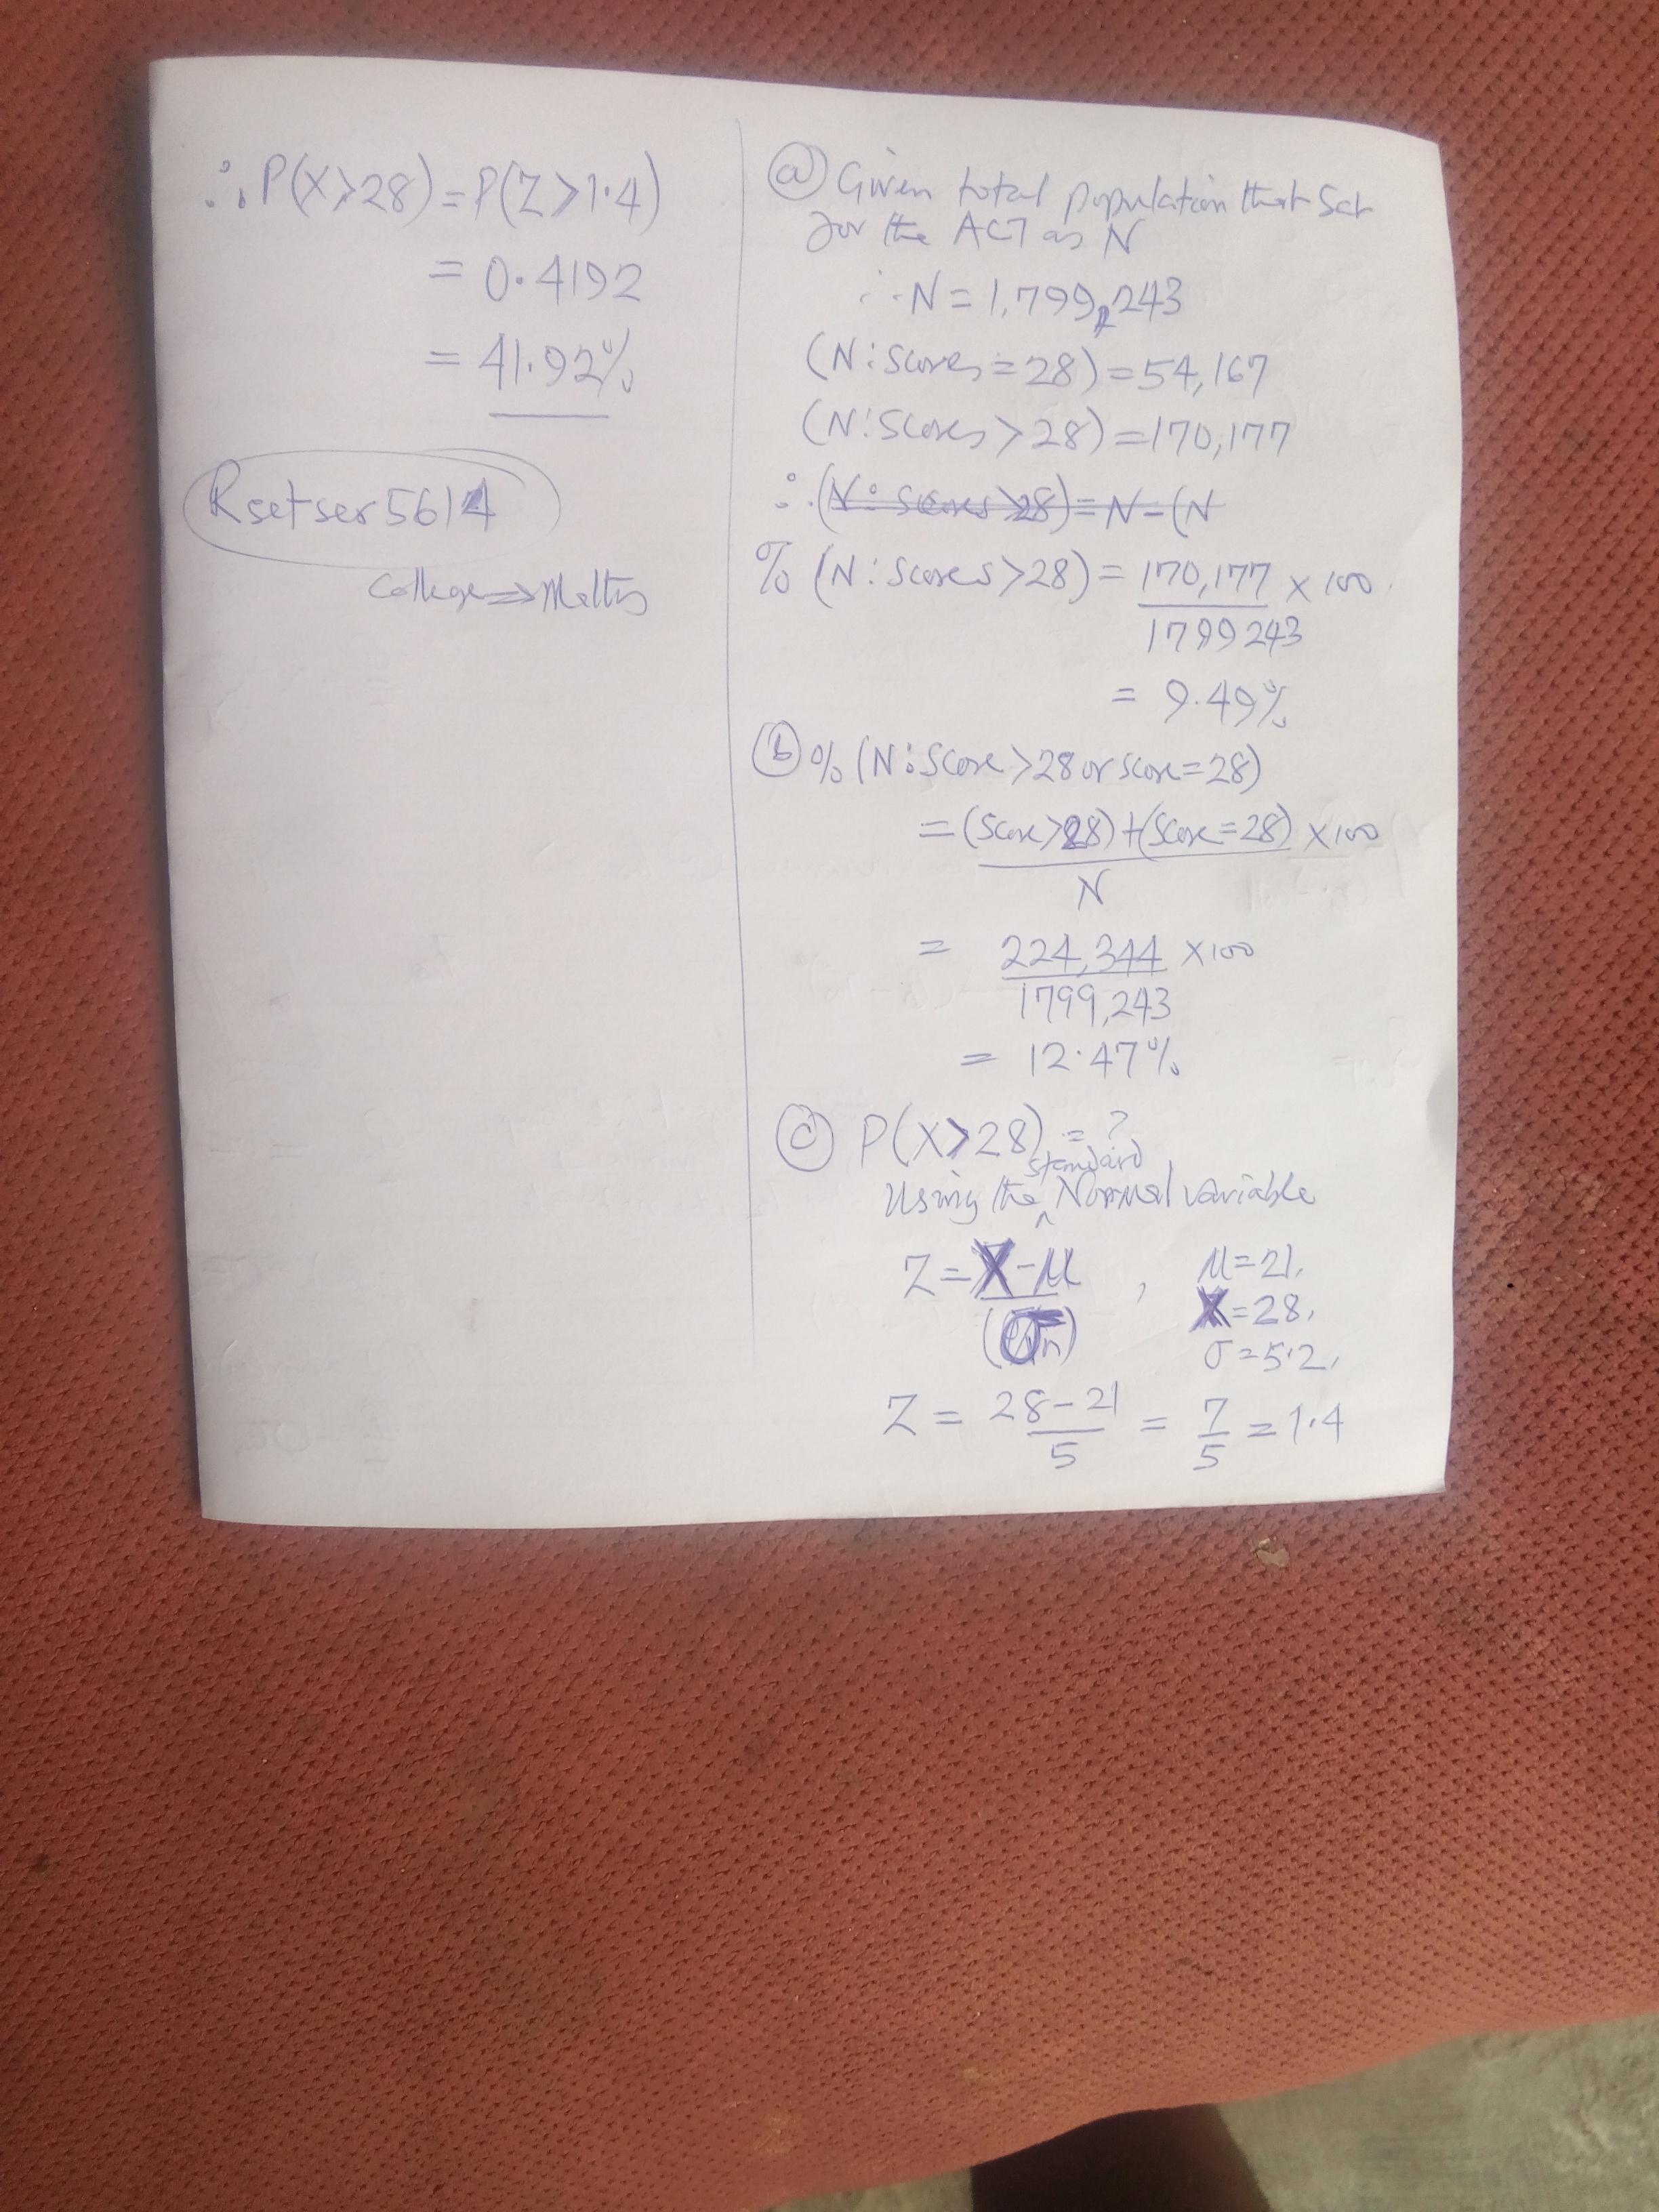 ⓐ Given total population that Sat
for the ACT as N
∴ N = 1,799,243
(N: Scores = 28) = 54,167
(N: Scores > 28) = 170,177
∴ (N: Scores > 28) = N - (N
% (N: Scores > 28) = 170,177 × 100
1799243
= 9.49%
ⓑ % (N: Score > 28 or score = 28)
= (Score > 28) + (Score = 28) × 100
N
= 224,344 × 100
1799,243
= 12.47%
ⓒ P(X > 28) = ?
Using the standard Normal variable
Z = X - μ , μ = 21,
X = 28,
σ = 5.2,
Z = 28 - 21 = 7 = 1.4
5 5
∴ P(X > 28) = P(Z > 1.4)
= 0.4192
= 41.92%
Rsetser5614
College ⇒ Maths